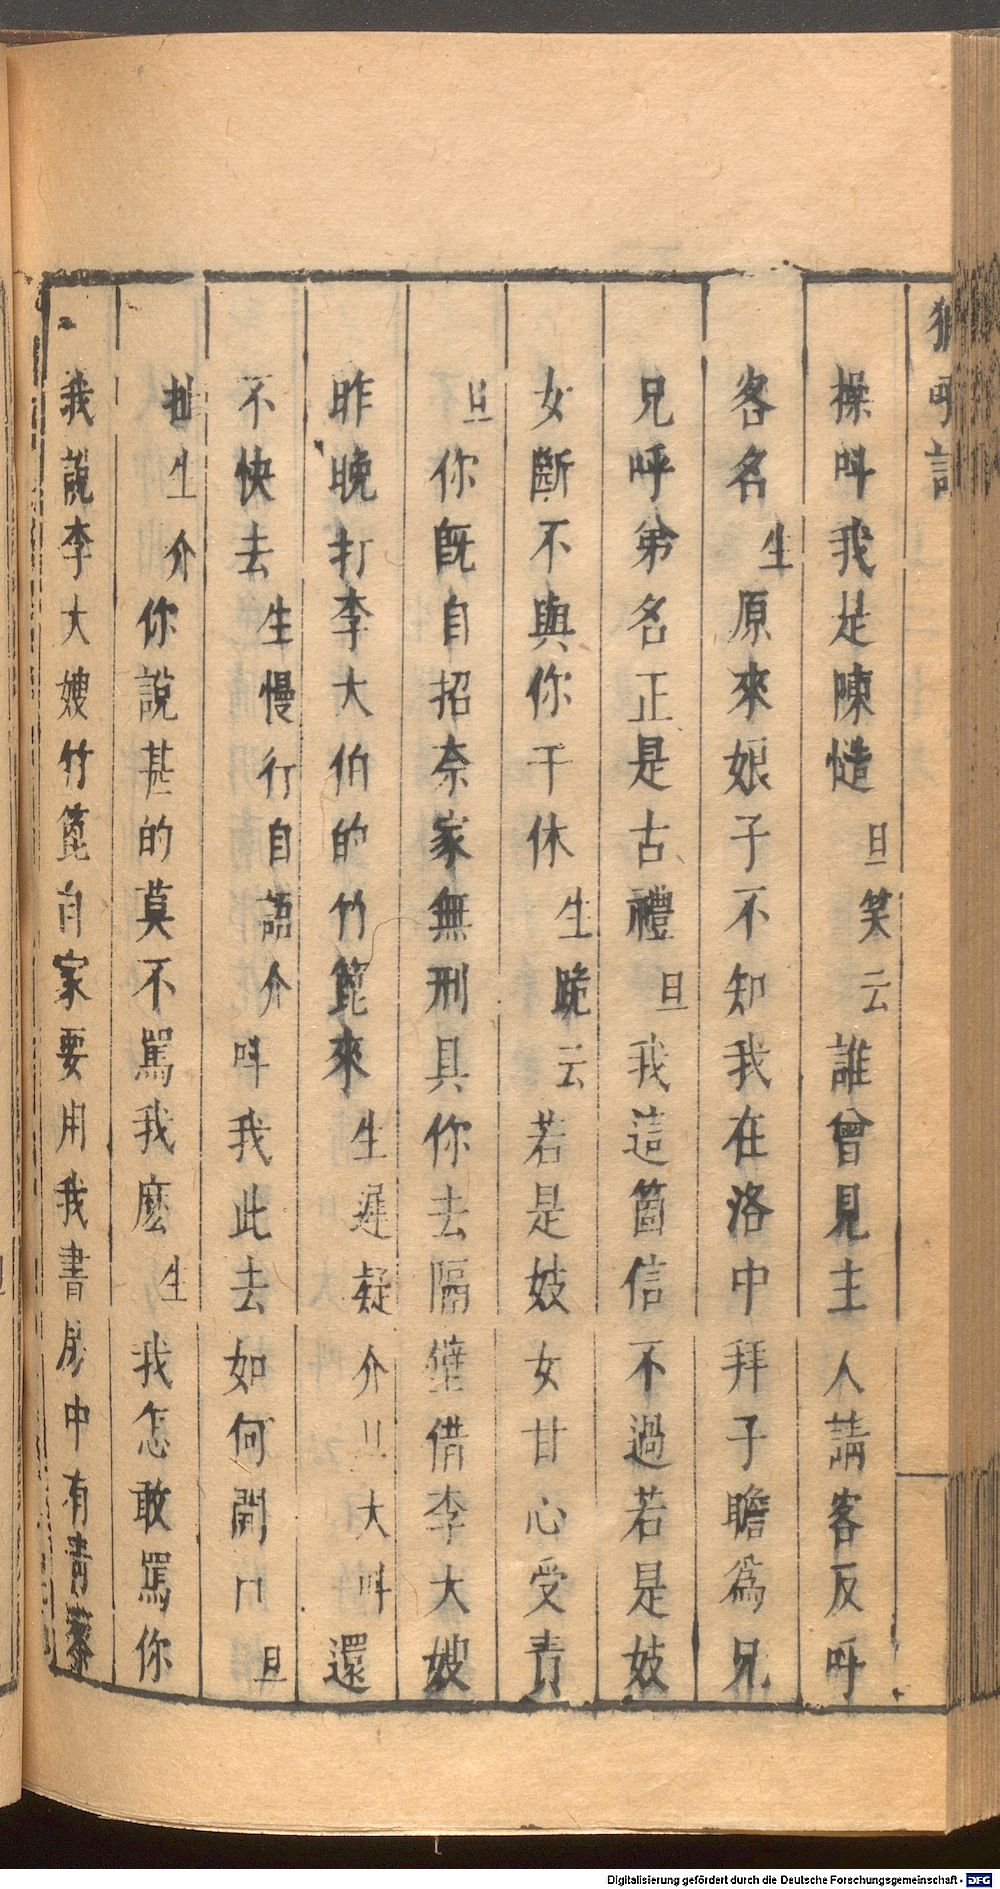 獅吼記
操叫我是陳慥旦笑云誰曾見主人請客反呼
客名生原來娘子不知我在洛中拜子瞻爲兄
兄呼弟名正是古禮旦我這箇信不過若是妓
女斷不與你干休生跪云若是妓女甘心受責
旦你旣自招奈家無刑具你去隔壁借李大嫂
昨晚打李大伯的竹篦來生遲疑介旦大叫還
不快去生慢行自語介叫我此去如何開口旦
扯生介你說甚的莫不罵我麽生我怎敢罵你
我說李大嫂竹篦自家要用我書房中有青藜
Digitalisierung gefördert durch die Deutsche Forschungsgemeinschaft - DFG